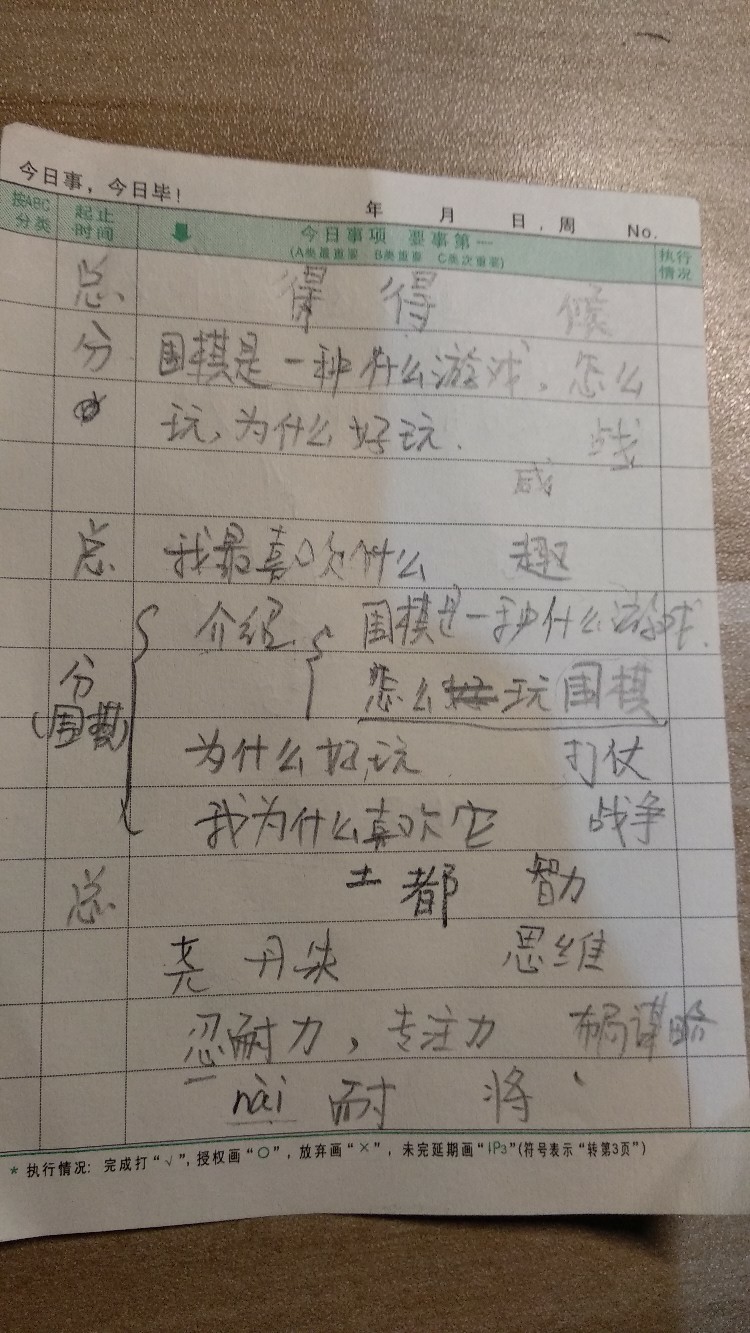 今日事，今日毕！
年 月 日，周 No.
按ABC分类 起止时间 今日事项 要事第一 执行情况
(A类最重要 B类重要 C类次重要)
总 得 得 候
分 围棋是一种什么游戏，怎么
玩，为什么好玩. 战
咸
总 我最喜欢什么 趣
介绍 围棋是一种什么游戏.
分 怎么玩围棋
(围棋)
为什么好玩 打仗
我为什么喜欢它 战争
总 土 都 智力
尧 丹朱 思维
忍耐力，专注力 布局谋略
nài 耐 将
* 执行情况: 完成打“√”, 授权画“○”, 放弃画“×”, 未完延期画“iP3”(符号表示“转第3页”)